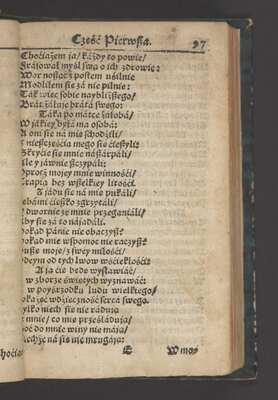 Cżęść Pierwſża. 97
Chociażem ja/ każdy to powie/
Fráſował myśl ſwą o ich zdrowie:
Wor noſząc z poſtem uśilnie
Modliłem śię zá nie pilnie:
Ták wiec ſobie naybliżſzego/
Brát żáłuje brátá ſwego:
Táka po mátce żałobá/
W jákiey byłá ma oſobá:
A oni śię ná mię ſchodźili/
nieſzcżęśćia mego śię cieſżyli:
Skryćie śię mnie náſżárpáli/
źle y jáwnie ſzcżypáli:
oprocż mojey mnie winnośći/
Trapią bez wſżelkiey litośći.
Z jádu śię ná mię pukáli/
zębámi ćięſżko zgrzytáli/
dwornie ze mnie przegániáli/
áby śię zá to nájádáli.
Pokąd Pánie nie obacżyſż?
Pokąd mię wſpomoc nie racżyſż?
Duſżę moję/ z ſwey miłośći/
od tych lwow wśćiekłośći:
A ja ćię będę wyſławiáć/
w zborze świętych wyznawáć:
w pośrzodku ludu wielkiego/
wdźięcżność ſercá ſwego.
Tylko niech śię nie rádują
mnie/ co mię prześládują/
do mnie winy nie máją/
ná śię nie mrugáją:
G